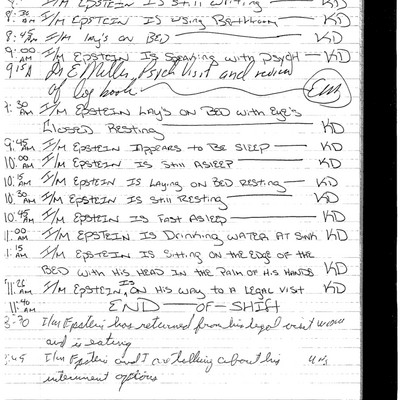 I/M EPSTEIN IS Still Writing KD
8:30 AM I/M EPSTEIN IS Using Bathroom KD
8:45 AM I/M lay's on BED KD
9:00 AM I/M EPSTEIN IS Speaking with PSYCH KD
9:15A Dr E Miller, Psych Visit and review
of log book
9:30 AM I/M EPSTEIN LAY'S ON BED with EyE'S
CLOSED RESting KD
9:45 AM I/M EPSTEIN APPEARS to BE SLEEP KD
10:00 AM I/M EPSTEIN IS Still ASLEEP KD
10:15 AM I/M EPSTEIN IS Laying ON BED RESting KD
10:30 AM I/M EPSTEIN IS still RESting KD
10:45 AM I/M EPSTEIN IS FAST ASLEEP KD
11:00 AM I/M EPSTEIN IS DRinking WATER At SiNK KD
11:15 AM I/M EPSTEIN IS Sitting on the EDGE OF the
BED with His HEAD IN the PALM OF His HANDS KD
11:26 AM I/M EPSTEIN, IS ON His WAY to A LEGAL VISIT KD
11:40 AM END-OF-SHIFT
3:30 I/m Epstein has returned from his legal visit
and is eating
:45 I/m Epstein and I are talking about his
internment options